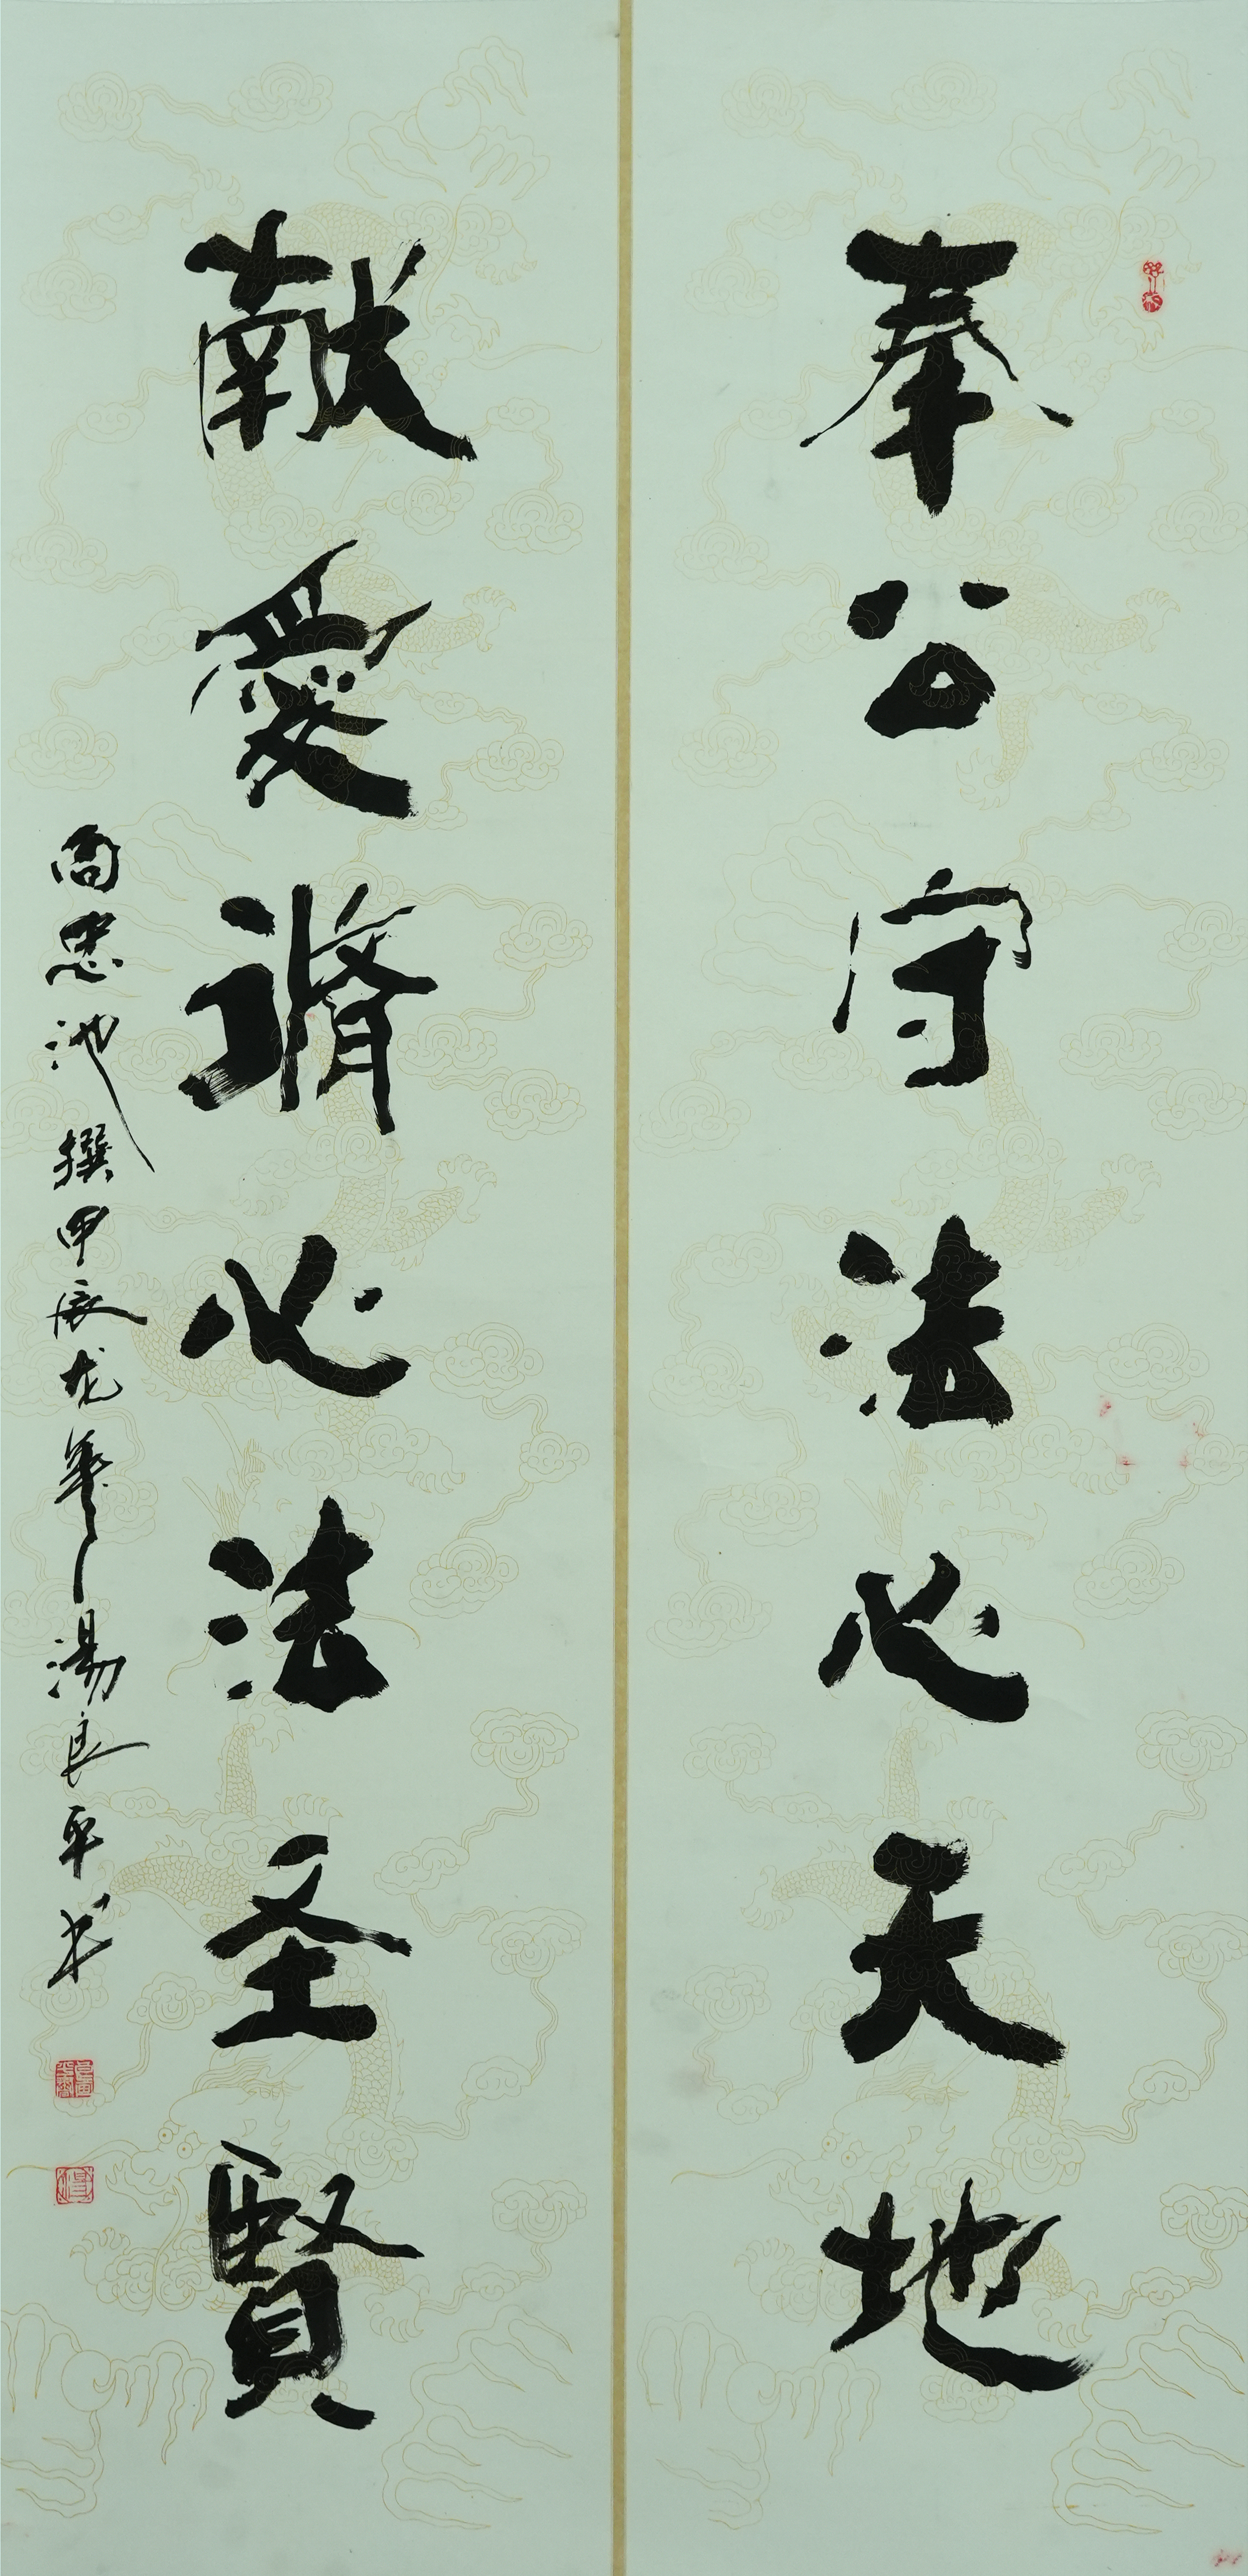 奉公守法心天地
献愛脩心法圣賢
尚忠池撰甲辰龙年湯良平书